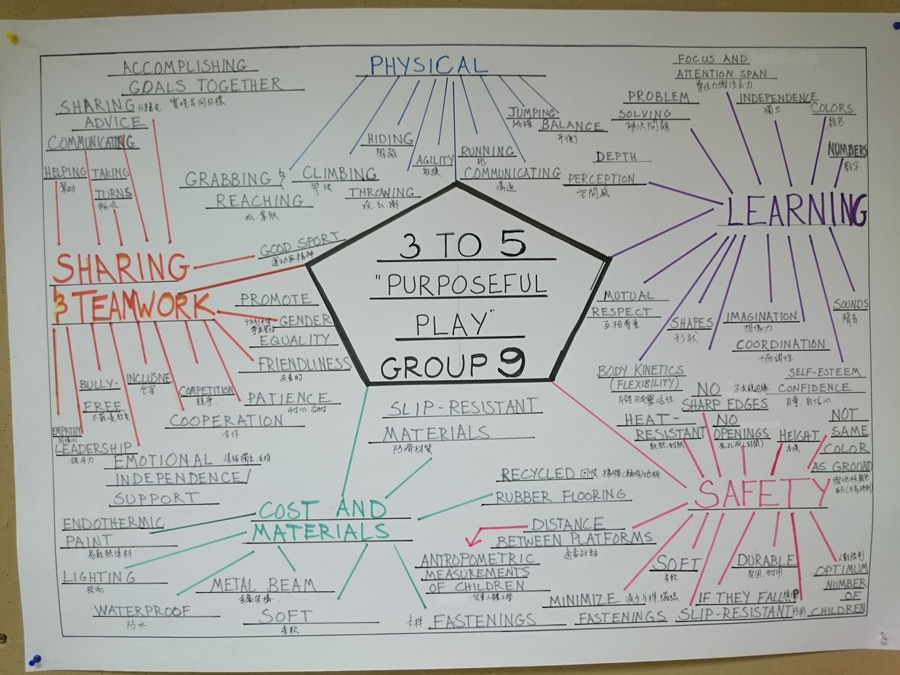 3 TO 5
"PURPOSEFUL
PLAY"
GROUP 9
PHYSICAL
GRABBING &
REACHING
CLIMBING
HIDING
隱藏
THROWING
AGILITY
敏捷
RUNNING
跑
COMMUNICATING
溝通
JUMPING
跳躍
BALANCE
平衡
LEARNING
FOCUS AND
ATTENTION SPAN
PROBLEM
SOLVING
解決問題
INDEPENDENCE
獨立
COLORS
顏色
NUMBERS
數字
DEPTH
PERCEPTION
空間感
MUTUAL
RESPECT
互相尊重
SHAPES
形狀
BODY KINETICS
(FLEXIBILITY)
IMAGINATION
想像力
COORDINATION
協調性
SOUNDS
聲音
SELF-ESTEEM
CONFIDENCE
自尊,自信心
SAFETY
HEAT-
RESISTANT
NO
SHARP EDGES
NO
OPENINGS
HEIGHT
高度
NOT
SAME
COLOR
AS GROUND
DISTANCE
BETWEEN PLATFORMS
ANTROPOMETRIC
MEASUREMENTS
OF CHILDREN
SOFT
柔軟
MINIMIZE
IF THEY FALL
DURABLE
堅固,耐用
FASTENINGS
SLIP-RESISTANT
OPTIMUM
NUMBER
OF
CHILDREN
COST AND
MATERIALS
SLIP-RESISTANT
MATERIALS
防滑材質
RECYCLED 回收
RUBBER FLOORING
ENDOTHERMIC
PAINT
LIGHTING
發光
WATERPROOF
防水
METAL BEAM
SOFT
柔軟
卡榫 FASTENINGS
SHARING
& TEAMWORK
ACCOMPLISHING
GOALS TOGETHER
實現共同目標
SHARING
ADVICE
COMMUNICATING
HELPING
幫助
TAKING
TURNS
輪流
GOOD SPORT
運動家精神
PROMOTE
GENDER
EQUALITY
FRIENDLINESS
友善的
PATIENCE
COMPETITION
競爭
COOPERATION
合作
INCLUSIVE
包容
BULLY-
FREE
EMPATHY
同理心
LEADERSHIP
領導力
EMOTIONAL
INDEPENDENCE/
SUPPORT